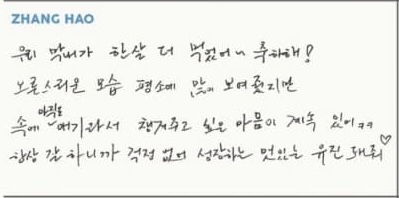 ZHANG HAO
우리 막내가 한살 더 먹었어~ 축하해!
어른스러운 모습 평소에 많이 보여줬지만
속에 아직도 애기라서 챙겨주고 싶은 마음이 계속 있어ㅋㅋ
항상 잘 하니까 걱정 없어 성장하는 멋있는 유진 돼줘♡